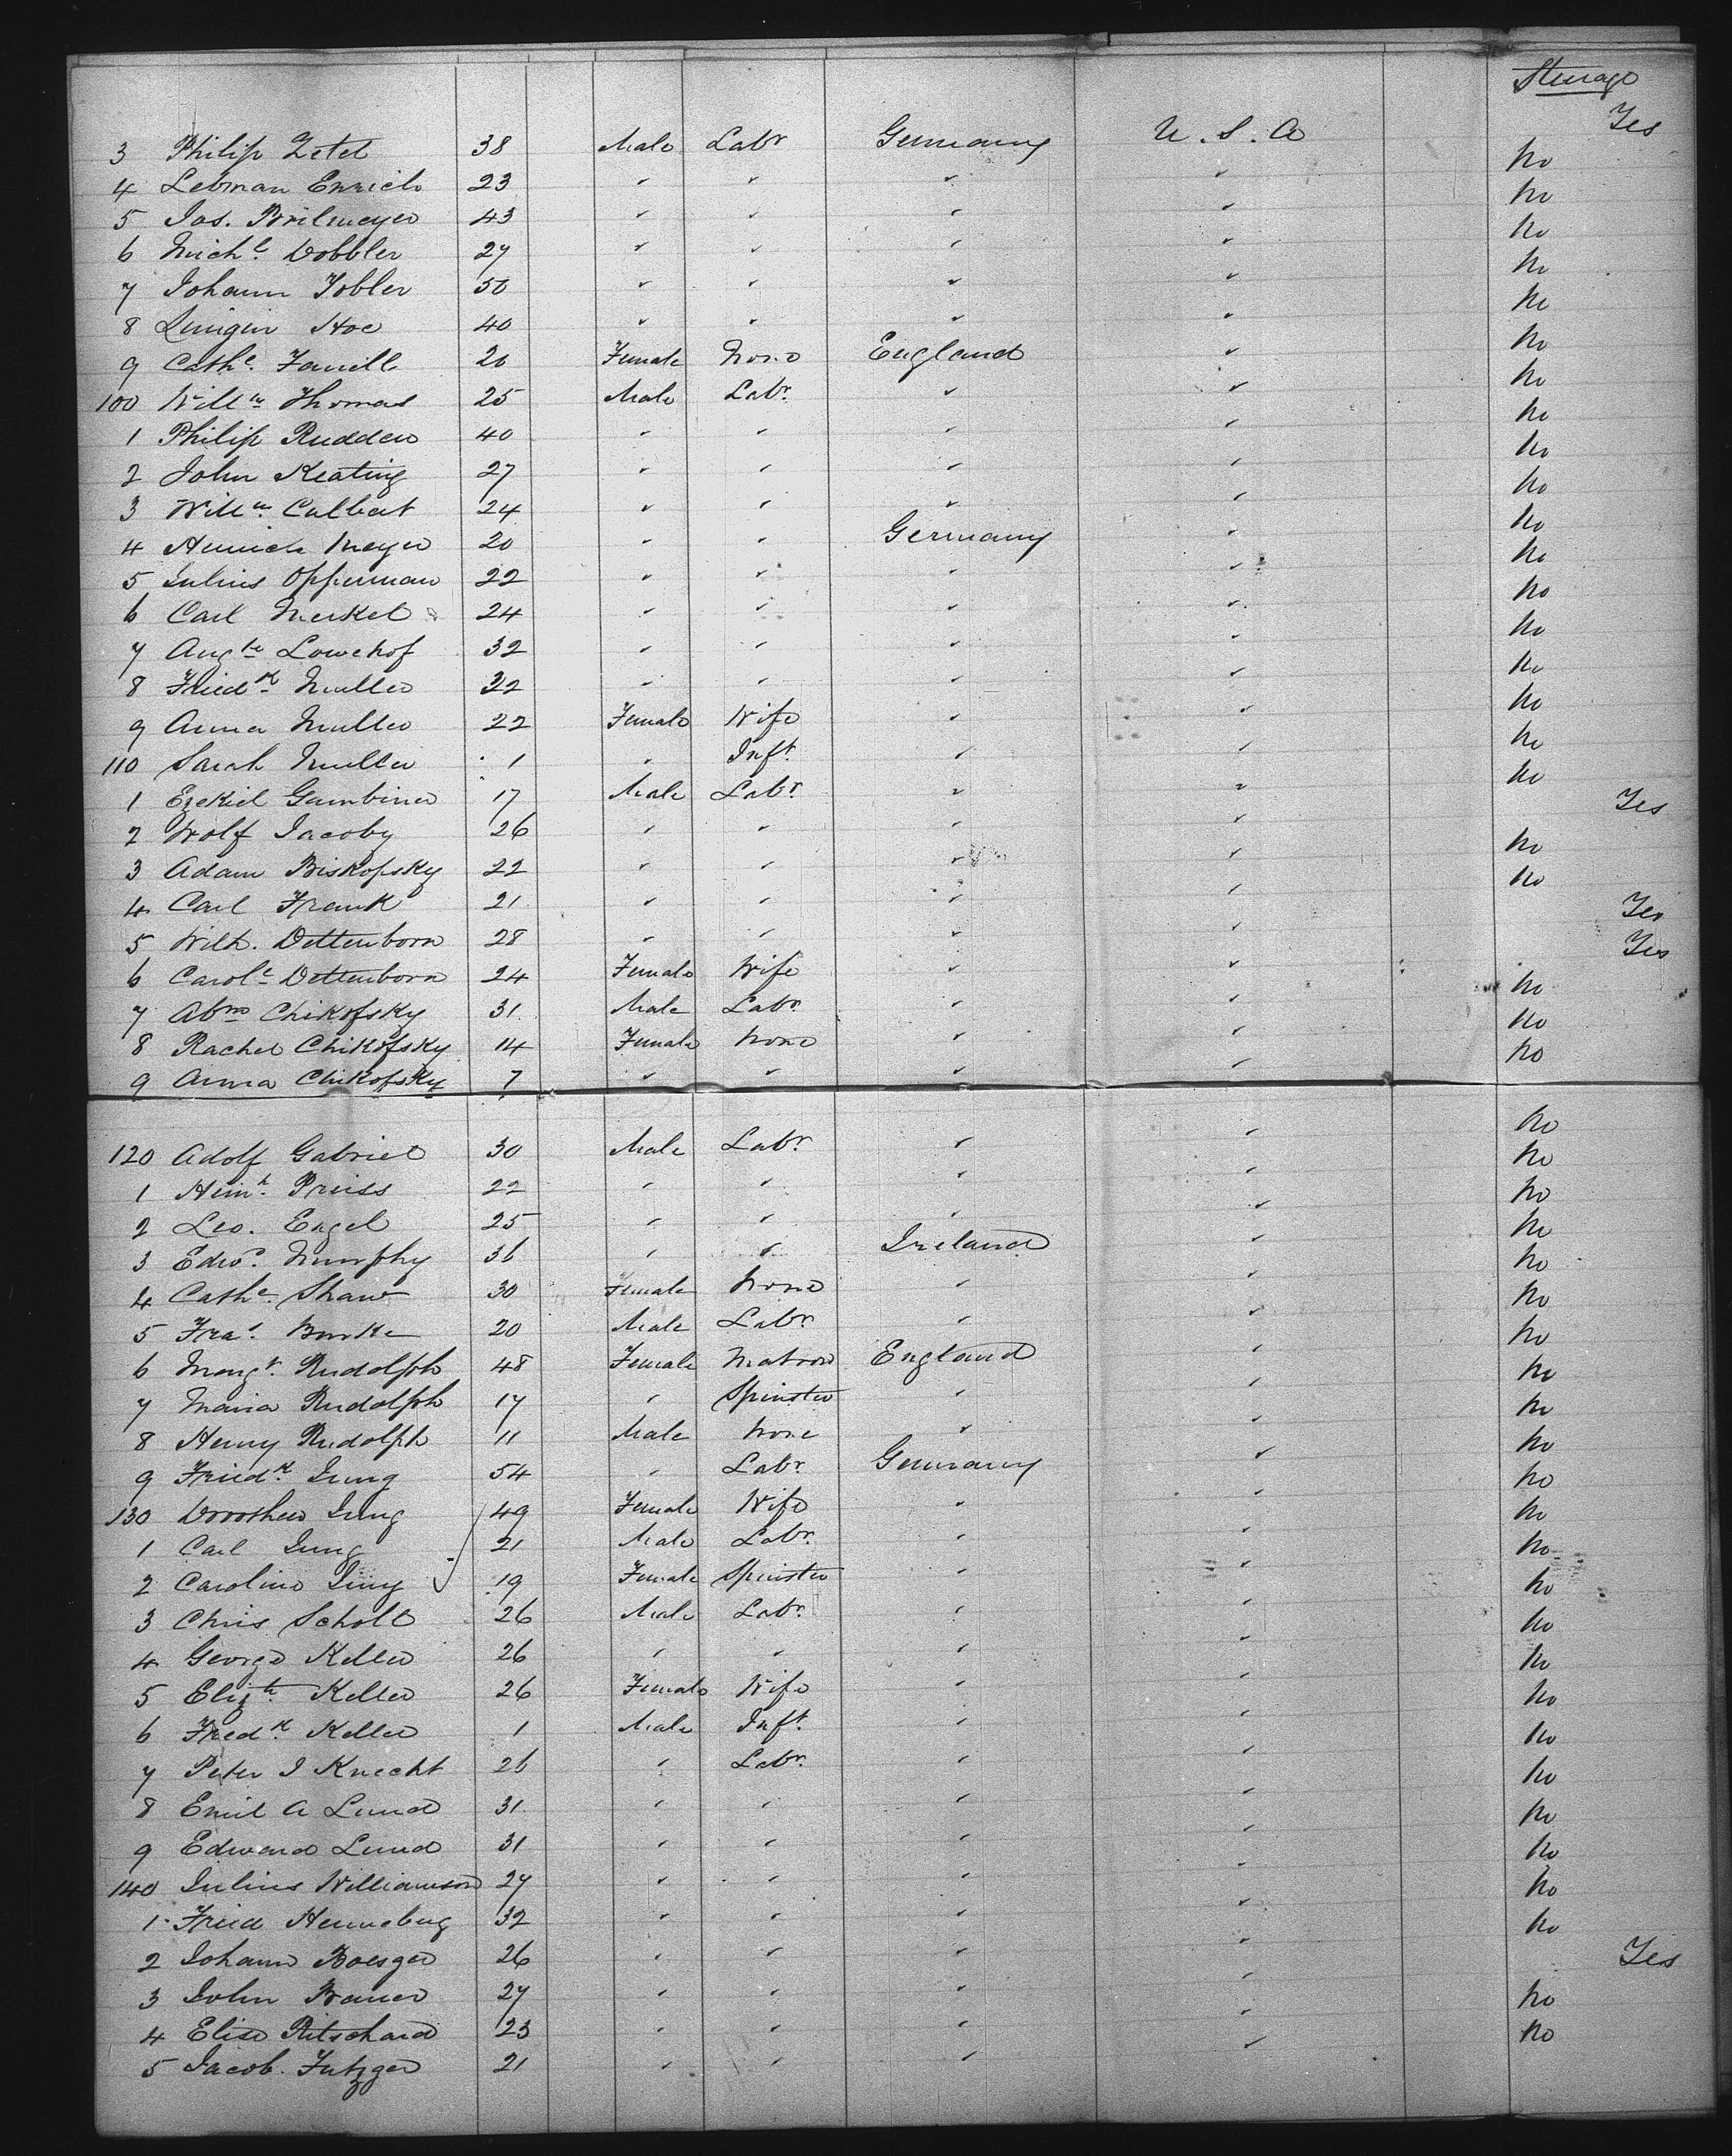 Steerage
3 Philip Zetel 38 Male Labr Germany U.S.A Yes
4 Lebman Enrich 23 " " " " No
5 Jos. Brilmeyer 43 " " " " No
6 Michl. Dobbler 27 " " " " No
7 Johann Tobler 50 " " " " No
8 Hoe 40 " " " " No
9 Cathe. Farrell 20 Female None England " No
100 Willm Thomas 25 Male Labr. " " No
1 Philip Rudden 40 " " " " No
2 John Keating 27 " " " " No
3 Willm. Culbert 24 " " " " No
4 Heinrich Meyer 20 " " Germany " No
5 Julius Opperman 22 " " " " No
6 Carl Merkel 24 " " " " No
7 Augte Lowehof 32 " " " " No
8 Friedk Muller 32 " " " " No
9 Anna Muller 22 Female Wife " " No
110 Sarah Muller 1 " Inft. " " No
1 Ezekiel Gambiner 17 Male Labr. " " No
2 Wolf Jacoby 26 " " " " Yes
3 Adam Biskofsky 22 " " " " No
4 Carl Frank 21 " " " " No
5 Wilh. Dettenborn 28 " " " " Yes
6 Carole Dettenborn 24 Female Wife " " Yes
7 Abm Chikofsky 31 Male Labr. " " No
8 Rachel Chikofsky 14 Female None " " No
9 Anna Chikofsky 7 " " " " No
120 Adolf Gabriel 30 Male Labr. " " No
1 Heinh. Preiss 22 " " " " No
2 Leo. Engel 25 " " " " No
3 Edwd. Murphy 36 " " Ireland " No
4 Cathe. Shaw 30 Female None " " No
5 Fras. Burke 20 Male Labr. " " No
6 Margt. Rudolph 48 Female Matron England " No
7 Maria Rudolph 17 " Spinster " " No
8 Henry Rudolph 11 Male None " " No
9 Friedk. Jung 54 " Labr. Germany " No
130 Dorothea Jung 49 Female Wife " " No
1 Carl Jung 21 Male Labr. " " No
2 Caroline Jung 19 Female Spinster " " No
3 Chris Scholl 26 Male Labr. " " No
4 George Keller 26 " " " " No
5 Elizth. Keller 26 Female Wife " " No
6 Fredk. Keller 1 Male Inft. " " No
7 Peter J Knecht 26 " Labr. " " No
8 Emil A Lund 31 " " " " No
9 Edward Lund 31 " " " " No
140 Julius Williamson 27 " " " " No
1 Fried Henneberg 32 " " " " No
2 Johann Boesger 26 " " " " No
3 John Bauer 27 " " " " Yes
4 Elise Ritschard 23 " " " " No
5 Jacob. Futzger 21 " " " " No